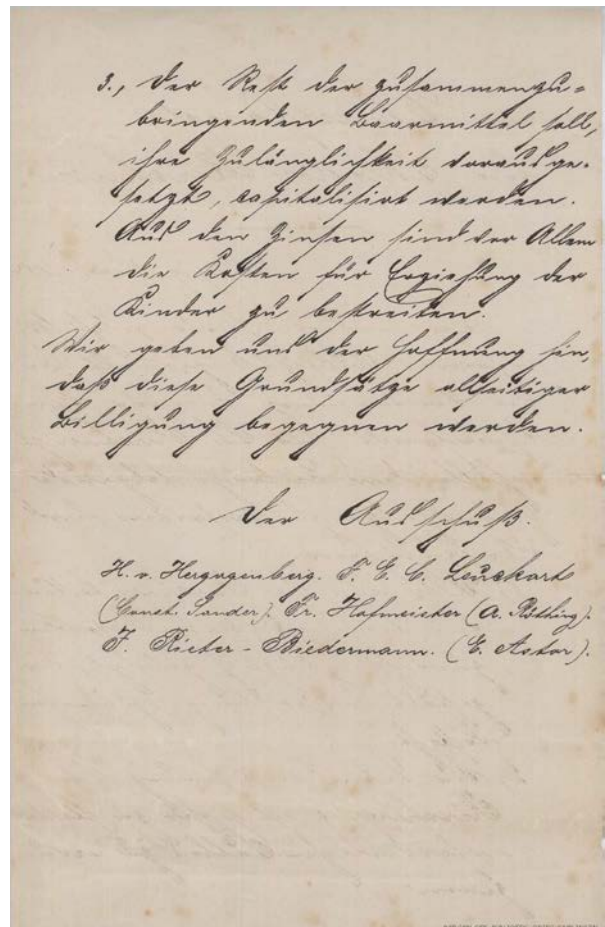 3., Der Rest der zusammenzu-
bringenden Baarmittel soll,
ihre Zulänglichkeit vorausge-
setzt, capitalisirt werden.
Aus den Zinsen sind vor Allem
die Kosten für Erziehung der
Kinder zu bestreiten.
Wir geben uns der Hoffnung hin,
daß diese Grundsätze allseitiger
Billigung begegnen werden.
Der Ausschuß.
H. v. Herzogenberg. F. E. C. Leuckart
(Const. Sander). Fr. Hofmeister (A. Röthing).
J. Rieter-Biedermann. (E. Astor).